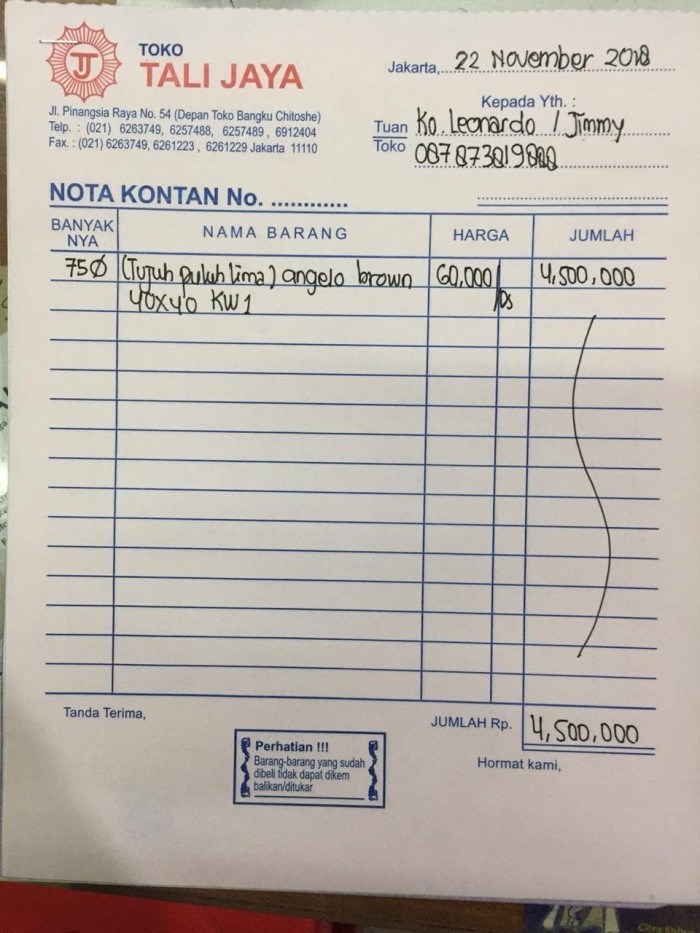 TJ
TOKO
TALI JAYA
Jl. Pinangsia Raya No. 54 (Depan Toko Bangku Chitoshe)
Telp. : (021) 6263749, 6257488, 6257489 , 6912404
Fax. : (021) 6263749, 6261223 , 6261229 Jakarta 11110
Jakarta, 22 November 2018
Kepada Yth. :
Tuan Ko. Leonardo / Jimmy
Toko
NOTA KONTAN No. ............
BANYAK NYA NAMA BARANG HARGA JUMLAH
75Ø (Tujuh puluh lima) angelo brown 60,000 4,500,000
40x40 KW1 /Ds
Tanda Terima,
JUMLAH Rp. 4,500,000
Hormat kami,
Perhatian !!!
Barang-barang yang sudah
dibeli tidak dapat dikem
balikan/ditukar